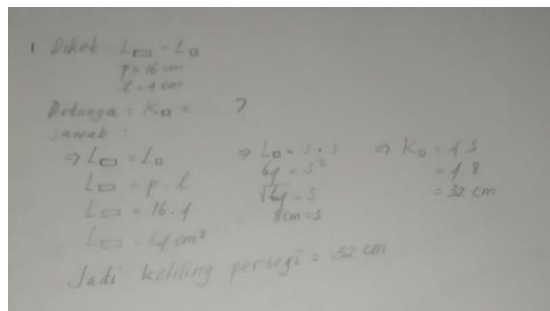 1 Diket : L▭ = L□
p = 16 cm
l = 4 cm
Ditanya : K□ = ?
Jawab :
⇒ L▭ = L□
L▭ = p . l
L▭ = 16 . 4
L▭ = 64 cm²
⇒ L□ = s . s
64 = s²
√64 = s
8cm = s
⇒ K□ = 4 s
= 4 . 8
= 32 cm
Jadi keliling persegi = 32 cm